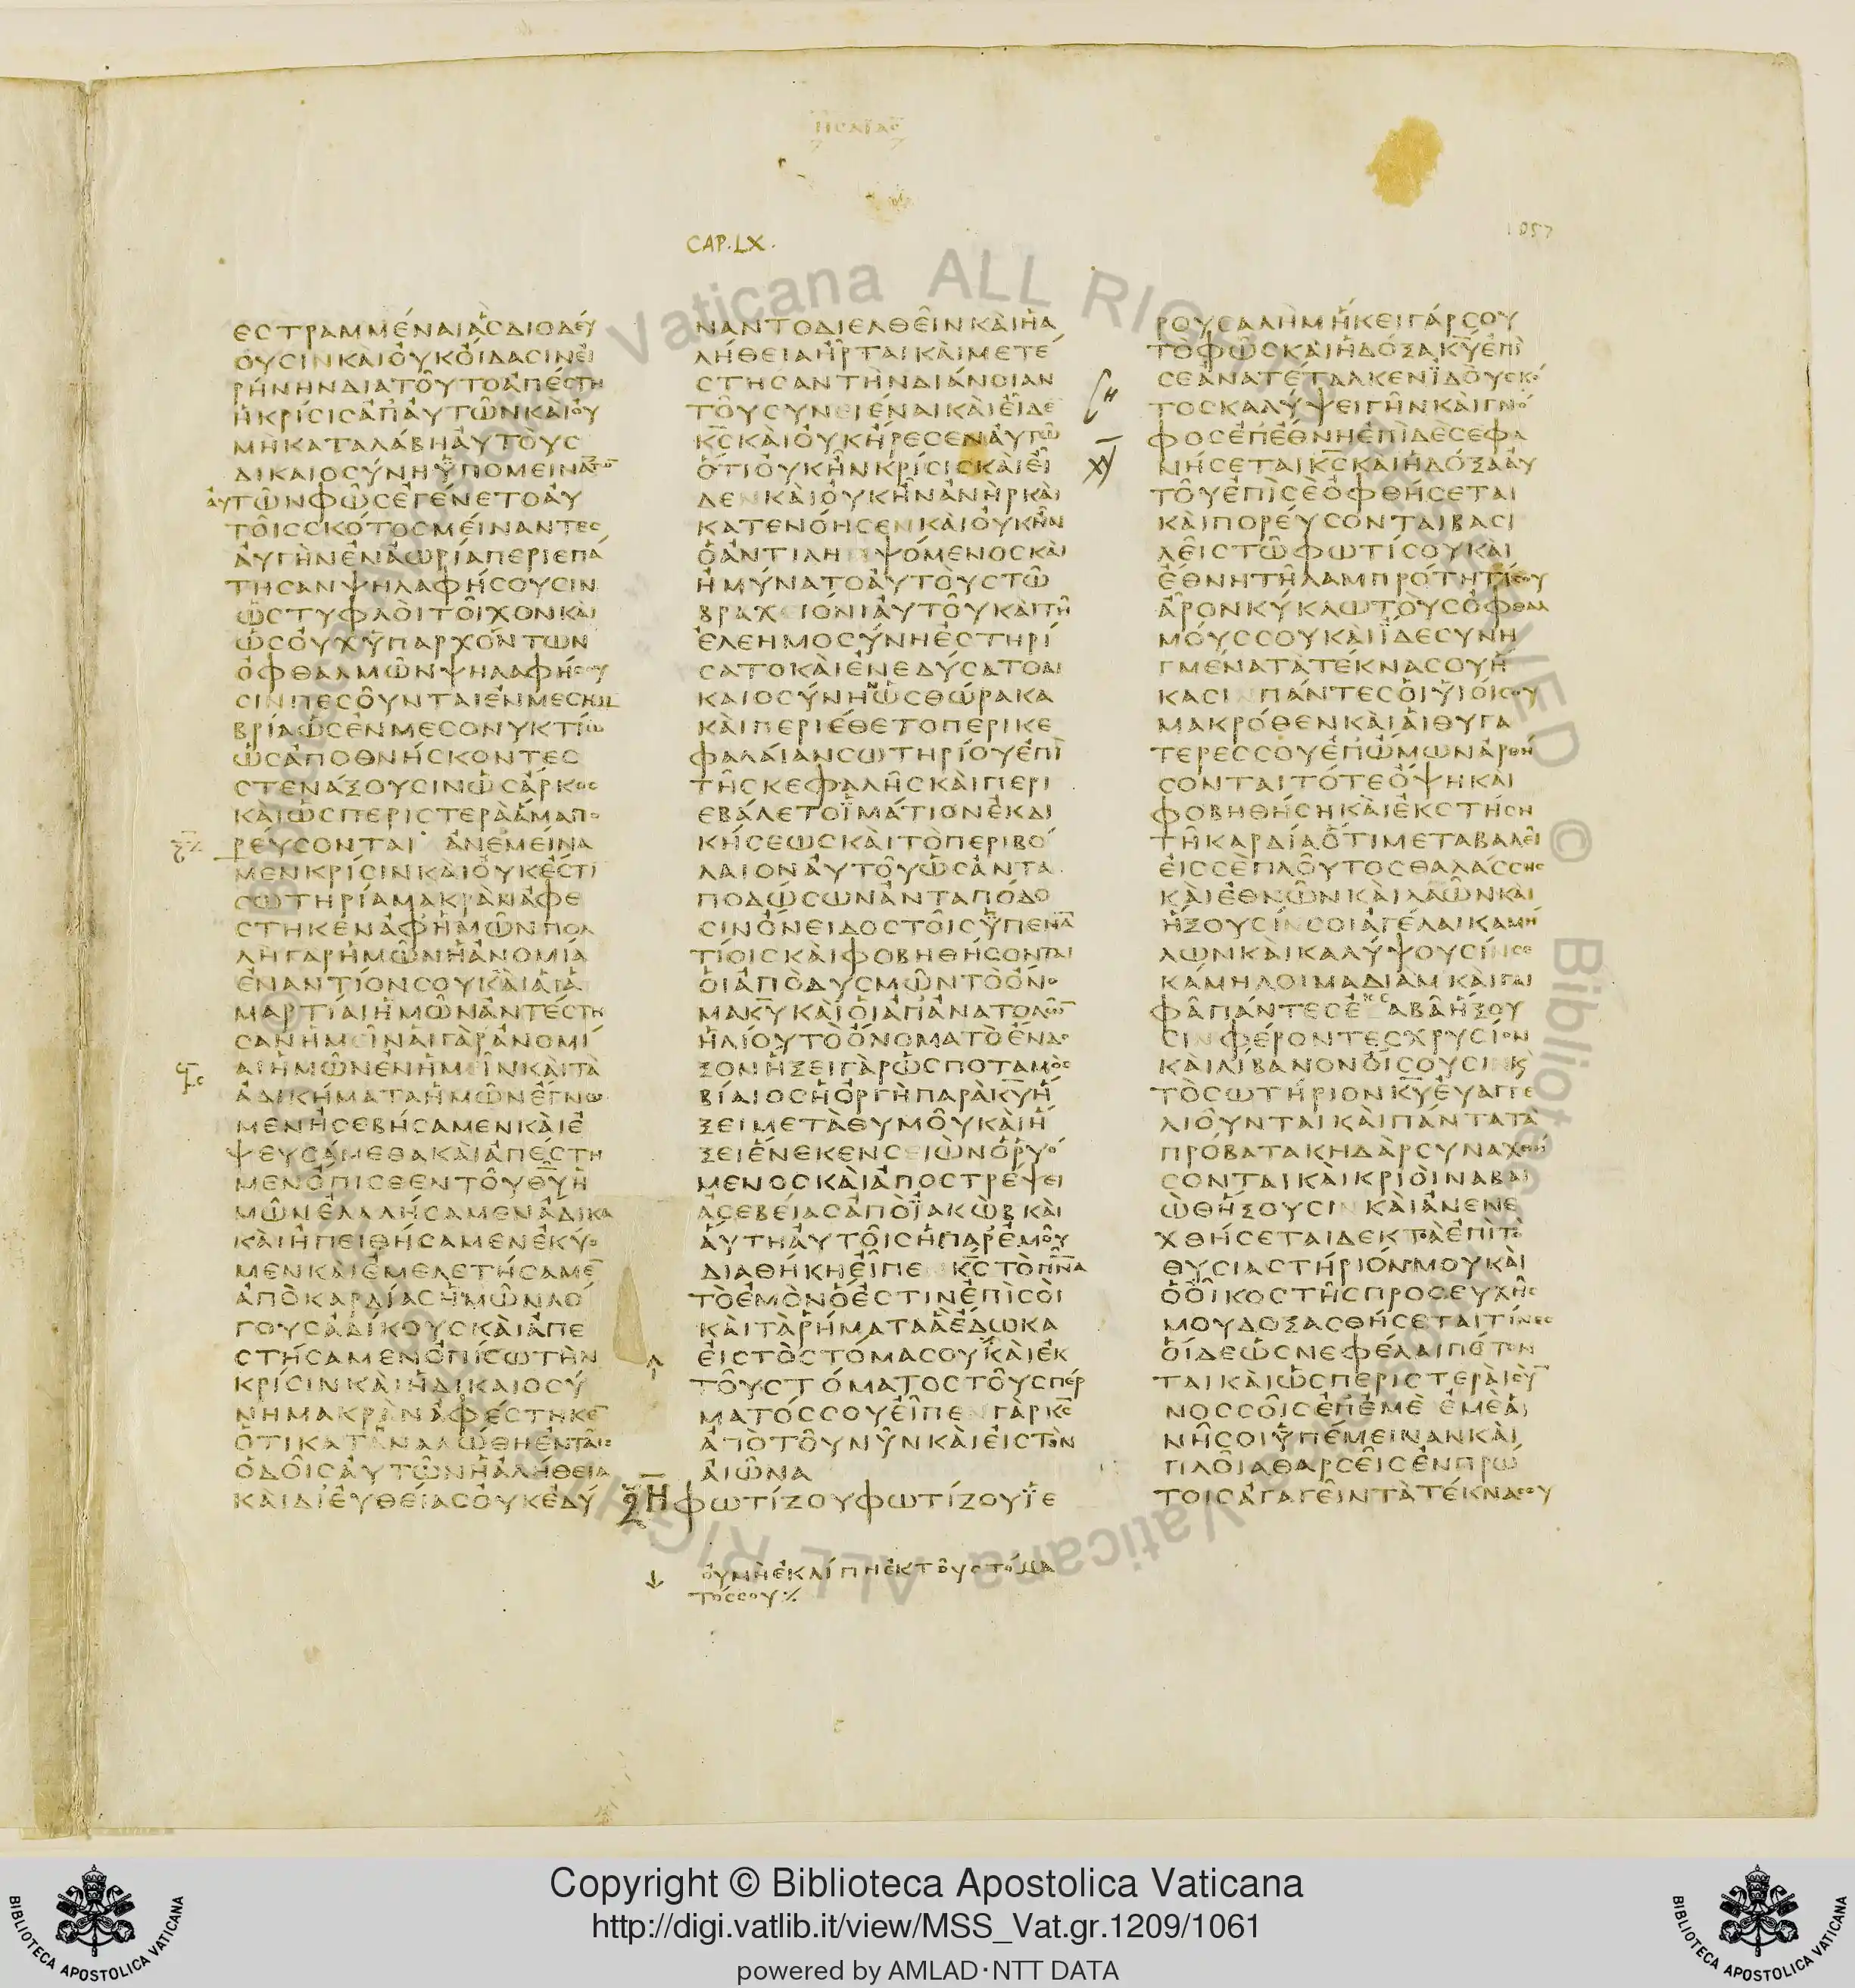 ΗΣΑΙΑΣ
CAP. LX.
1057
ΕΣΤΡΑΜΜΈΝΑΙ ἋΣ ΔΙΟΔΕΥ
ΟΥΣΙΝ ΚΑῚ ΟΥ̓Κ ΟἼΔΑΣΙΝ ΕΙ
ΡΉΝΗΝ ΔΙΑ ΤΟΥ͂ΤΟ ἈΠΈΣΤΗ
Ἡ ΚΡΊΣΙΣ ἈΠ ΑΥΤΩ͂Ν ΚΑῚ ΟΥ
ΜῊ ΚΑΤΑΛΆΒΗ ΑΥΤΟῪΣ
ΔΙΚΑΙΟΣΎΝΗ ΫΠΟΜΕΙΝΑ̅ΤΩ̅
ΑΥΤΩ͂Ν ΦΩ͂Σ ἘΓΈΝΕΤΟ ΑΥ
ΤΟΙ͂Σ ΣΚΌΤΟΣ ΜΕΊΝΑΝΤΕΣ
ΑΥΓῊΝ ἘΝ ἈΩΡΊΑ ΠΕΡΙΕΠΆ
ΤΗΣΑΝ ΨΗΛΑΦΉΣΟΥΣΙΝ
ὩΣ ΤΥΦΛΟῚ ΤΟΙ͂ΧΟΝ ΚΑῚ
ὩΣ ΟΥΧ ΫΠΑΡΧΌΝΤΩΝ
ὈΦΘΑΛΜΩ͂Ν ΨΗΛΑΦΉΣΟΥ
ΣΙΝ ΠΕΣΟΥ͂ΝΤΑΙ ἘΝ ΜΕΣΗΜ
ΒΡΊΑ ὩΣ ἘΝ ΜΕΣΟΝΥΚΤΊΩ
ὩΣ ἈΠΟΘΝΉΣΚΟΝΤΕΣ
ΣΤΕΝΆΞΟΥΣΙΝ ὩΣ ἌΡΚΟΣ
ΚΑῚ ὩΣ ΠΕΡΙΣΤΕΡᾺ ἍΜΑ ΠΟ
ΡΕΎΣΟΝΤΑΙ ἈΝΕΜΕΊΝΑ
ΜΕΝ ΚΡΊΣΙΝ ΚΑῚ ΟΥΚ ἜΣΤΙ
ΣΩΤΗΡΊΑ ΜΑΚΡᾺΝ ἈΦΕ
ΣΤΗΚΕΝ ἈΦ ἩΜΩ͂Ν ΠΟΛ
ΛῊ ΓΑΡ ἩΜΩ͂Ν Ἡ ἈΝΟΜΊΑ
ἘΝΑΝΤΊΟΝ ΣΟΥ ΚΑῚ ΑἹ Ἁ
ΜΑΡΤΊΑΙ ἩΜΩ͂Ν ἈΝΤΈΣΤΗ
ΣΑΝ ἩΜΕΙ͂Ν ΑἹ ΓᾺΡ ἈΝΟΜΊ
ΑΙ ἩΜΩ͂Ν ἘΝ ἩΜΕΙ͂Ν ΚΑῚ ΤᾺ
ἈΔΙΚΉΜΑΤΑ ἩΜΩ͂Ν ἜΓΝΩ
ΜΕΝ ἨΣΕΒΉΣΑΜΕΝ ΚΑῚ Ἐ
ΨΕΥΣΆΜΕΘΑ ΚΑῚ ἈΠΈΣΤΗ
ΜΕΝ ὌΠΙΣΘΕΝ ΤΟΥ͂ Θ̅Υ̅ Ἡ
ΜΩ͂Ν ἘΛΑΛΉΣΑΜΕΝ ἌΔΙΚΑ
ΚΑῚ ἨΠΕΙΘΉΣΑΜΕΝ ἘΚΎΟ
ΜΕΝ ΚΑῚ ἘΜΕΛΕΤΉΣΑΜΕ̅
ἈΠῸ ΚΑΡΔΊΑΣ ἩΜΩ͂Ν ΛΌ
ΓΟΥΣ ἈΔΊΚΟΥΣ ΚΑῚ ἈΠΕ
ΣΤΉΣΑΜΕΝ ὈΠΊΣΩ ΤῊΝ
ΚΡΊΣΙΝ ΚΑῚ Ἡ ΔΙΚΑΙΟΣΎ
ΝΗ ΜΑΚΡᾺΝ ἈΦΈΣΤΗΚΕ̅
ὍΤΙ ΚΑΤΑΝΑΛΏΘΗ ἘΝ ΤΑΙ͂Σ
ὉΔΟΙ͂Σ ΑΥΤΩ͂Ν Ἡ ἈΛΉΘΕΙΑ
ΚΑΙ ΔΙ ΕΥΘΕΊΑΣ ΟΥΚ ἘΔΎ
ΝΑΝΤΟ ΔΙΕΛΘΕΙ͂Ν ΚΑῚ Ἡ Ἀ
ΛΉΘΕΙΑ ἮΡΤΑΙ ΚΑῚ ΜΕΤΈ
ΣΤΗΣΑΝ ΤῊΝ ΔΙΆΝΟΙΑΝ
ΤΟΥ͂ ΣΥΝΕΙΈΝΑΙ ΚΑῚ ΕἾΔΕ
Κ̅Σ̅ ΚΑῚ ΟΥΚ ἬΡΕΣΕΝ ΑΥΤΩ͂
ὍΤΙ ΟΥΚ ἮΝ ΚΡΊΣΙΣ ΚΑῚ ΕἾ
ΔΕΝ ΚΑῚ ΟΥΚ ἮΝ ἈΝῊΡ ΚΑῚ
ΚΑΤΕΝΌΗΣΕΝ ΚΑῚ ΟΥΚ ἮΝ
Ὁ ἈΝΤΙΛΗΜΨΌΜΕΝΟΣ ΚΑῚ
ἨΜΎΝΑΤΟ ΑΥΤΟῪΣ ΤΩ͂
ΒΡΑΧΕΙΌΝΙ ΑΥΤΟΥ͂ ΚΑῚ ΤΗ͂
ἘΛΕΗΜΟΣΎΝΗ ἘΣΤΗΡΊ
ΣΑΤΟ ΚΑῚ ἘΝΕΔΎΣΑΤΟ ΔΙ
ΚΑΙΟΣΎΝΗΝ ὩΣ ΘΏΡΑΚΑ
ΚΑῚ ΠΕΡΙΈΘΕΤΟ ΠΕΡΙΚΕ
ΦΑΛΑΊΑΝ ΣΩΤΗΡΊΟΥ ἘΠῚ
ΤΗ͂Σ ΚΕΦΑΛΗ͂Σ ΚΑῚ ΠΕΡΙ
ΕΒΆΛΕΤΟ ΪΜΆΤΙΟΝ ἘΚΔΙ
ΚΉΣΕΩΣ ΚΑῚ ΤῸ ΠΕΡΙΒΌ
ΛΑΙΟΝ ΑΥΤΟΥ͂ ὩΣ ἈΝΤΑ
ΠΟΔΏΣΩΝ ἈΝΤΑΠΌΔΟ
ΣΙΝ ὌΝΕΙΔΟΣ ΤΟΙ͂Σ ΫΠΕΝΑ̅
ΤΊΟΙΣ ΚΑῚ ΦΟΒΗΘΉΣΟΝΤΑΙ
ΟἹ ἈΠῸ ΔΥΣΜΩ͂Ν ΤῸ ὌΝΟ
ΜΑ Κ̅Υ̅ ΚΑῚ ΟἹ ἈΠ ἈΝΑΤΟΛΩ̅
ἩΛΊΟΥ ΤῸ ὌΝΟΜΑ ΤῸ ἜΝΔΟ
ΞΟΝ ἭΞΕΙ ΓᾺΡ ὩΣ ΠΟΤΑΜῸΣ
ΒΊΑΙΟΣ Ἡ ὈΡΓῊ ΠΑΡᾺ Κ̅Υ̅ Ἥ
ΞΕΙ ΜΕΤᾺ ΘΥΜΟΥ͂ ΚΑῚ Ἥ
ΞΕΙ ἝΝΕΚΕΝ ΣΕΙῺΝ Ὁ ΡΥΌ
ΜΕΝΟΣ ΚΑῚ ἈΠΟΣΤΡΈΨΕΙ
ἈΣΕΒΕΊΑΣ ἈΠῸ ΪΑΚῺΒ ΚΑῚ
ΑὝΤΗ ΑΥΤΟΙ͂Σ Ἡ ΠΑΡ ἘΜΟΥ͂
ΔΙΑΘΉΚΗ ΕἾΠΕΝ Κ̅Σ̅ ΤῸ Π̅Ν̅Α̅
ΤῸ ἘΜῸΝ Ὅ ἘΣΤΙΝ ἘΠῚ ΣΟῚ
ΚΑῚ ΤᾺ ῬΉΜΑΤΑ Ἃ ἜΔΩΚΑ
ΕἸΣ ΤῸ ΣΤΌΜΑ ΣΟΥ ΚΑῚ ἘΚ
ΤΟΥ͂ ΣΤΌΜΑΤΟΣ ΤΟΥ͂ ΣΠΈΡ
ΜΑΤΌΣ ΣΟΥ ΕἾΠΕΝ ΓᾺΡ Κ̅Σ̅
ἈΠῸ ΤΟΥ͂ ΝΥ͂Ν ΚΑῚ ΕἸΣ ΤῸΝ
ΑἸΩ͂ΝΑ
ΞΗ ΦΩΤΊΖΟΥ ΦΩΤΊΖΟΥ ΪΕ
ΟΥ ΜῊ ἘΚΛΊΠΗ ἘΚ ΤΟΥ͂ ΣΤΌΜΑ
ΤΌΣ ΣΟΥ
ΡΟΥΣΑΛῊΜ ἭΚΕΙ ΓΆΡ ΣΟΥ
ΤῸ ΦΩ͂Σ ΚΑῚ Ἡ ΔΌΞΑ Κ̅Υ̅ ἘΠῚ
ΣΕ ἈΝΑΤΈΤΑΛΚΕΝ ΪΔΟῪ ΣΚΌ
ΤΟΣ ΚΑΛΎΨΕΙ ΓΗ͂Ν ΚΑῚ ΓΝΌ
ΦΟΣ ἘΠ ἜΘΝΗ ἘΠῚ ΔῈ ΣΕ ΦΑ
ΝΉΣΕΤΑΙ Κ̅Σ̅ ΚΑῚ Ἡ ΔΌΞΑ ΑΥ
ΤΟΥ͂ ἘΠῚ ΣῈ ὈΦΘΉΣΕΤΑΙ
ΚΑῚ ΠΟΡΕΎΣΟΝΤΑΙ ΒΑΣΙ
ΛΕΙ͂Σ ΤΩ͂ ΦΩΤΊ ΣΟΥ ΚΑῚ
ἜΘΝΗ ΤΗ͂ ΛΑΜΠΡΌΤΗΤΊ ΣΟΥ
ἎΡΟΝ ΚΎΚΛΩ ΤΟῪΣ ὈΦΘΑΛ
ΜΟΎΣ ΣΟΥ ΚΑῚ ΪΔΕ ΣΥΝΗ
ΓΜΈΝΑ ΤᾺ ΤΈΚΝΑ ΣΟΥ Ἥ
ΚΑΣΙΝ ΠΆΝΤΕΣ ΟἹ ΫΙΟΊ ΣΟΥ
ΜΑΚΡΌΘΕΝ ΚΑῚ ΑἹ ΘΥΓΑ
ΤΈΡΕΣ ΣΟΥ ἘΠ ὬΜΩΝ ἈΡΘΉ
ΣΟΝΤΑΙ ΤΌΤΕ ὌΨΗ ΚΑῚ
ΦΟΒΗΘΉΣΗ ΚΑῚ ἘΚΣΤΉΣΗ
ΤΗ͂ ΚΑΡΔΊΑ ὍΤΙ ΜΕΤΑΒΑΛΕΙ͂
ΕἸΣ ΣῈ ΠΛΟΥ͂ΤΟΣ ΘΑΛΆΣΣΗΣ
ΚΑῚ ἘΘΝΩ͂Ν ΚΑῚ ΛΑΩ͂Ν ΚΑῚ
ἭΞΟΥΣΊΝ ΣΟΙ ἈΓΈΛΑΙ ΚΑΜΉ
ΛΩΝ ΚΑῚ ΚΑΛΎΨΟΥΣΊΝ ΣΕ
ΚΆΜΗΛΟΙ ΜΑΔΙᾺΜ ΚΑῚ ΓΑΙ
ΦΑ͂ ΠΆΝΤΕΣ ἘΚ ΣΑΒΑ͂ ἭΞΟΥ
ΣΙΝ ΦΈΡΟΝΤΕΣ ΧΡΥΣΊΟΝ
ΚΑῚ ΛΊΒΑΝΟΝ ΟἼΣΟΥΣΙΝ Κ̀
ΤῸ ΣΩΤΉΡΙΟΝ Κ̅Υ̅ ΕΥΑΓΓΕ
ΛΙΟΥ͂ΝΤΑΙ ΚΑῚ ΠΆΝΤΑ ΤᾺ
ΠΡΌΒΑΤΑ ΚΗΔᾺΡ ΣΥΝΑΧΘΉ
ΣΟΝΤΑΙ ΚΑῚ ΚΡΙΟῚ ΝΑΒΑΙ
ῺΘ ἭΞΟΥΣΙΝ ΚΑῚ ἈΝΕΝΕ
ΧΘΉΣΕΤΑΙ ΔΕΚΤᾺ ἘΠῚ ΤῸ
ΘΥΣΙΑΣΤΉΡΙΌΝ ΜΟΥ ΚΑῚ
Ὁ ΟἾΚΟΣ ΤΗ͂Σ ΠΡΟΣΕΥΧΗ͂Σ
ΜΟΥ ΔΟΞΑΣΘΉΣΕΤΑΙ ΤΊΝΕΣ
ΟἽΔΕ ὩΣ ΝΕΦΈΛΑΙ ΠΈΤΟΝ
ΤΑΙ ΚΑῚ ὩΣ ΠΕΡΙΣΤΕΡΑῚ ΣΥ̅
ΝΟΣΣΟΙ͂Σ ἘΠ ἘΜῈ ἘΜῈ ΑἹ
ΝΗ͂ΣΟΙ ΫΠΈΜΕΙΝΑΝ ΚΑῚ
ΠΛΟΙ͂Α ΘΑΡΣΕΙ͂Σ ἘΝ ΠΡΩ͂
ΤΟΙΣ ἈΓΑΓΕΙ͂Ν ΤᾺ ΤΈΚΝΑ ΣΟΥ
Copyright © Biblioteca Apostolica Vaticana
http://digi.vatlib.it/view/MSS_Vat.gr.1209/1061
powered by AMLAD·NTT DATA
BIBLIOTECA APOSTOLICA VATICANA
BIBLIOTECA APOSTOLICA VATICANA